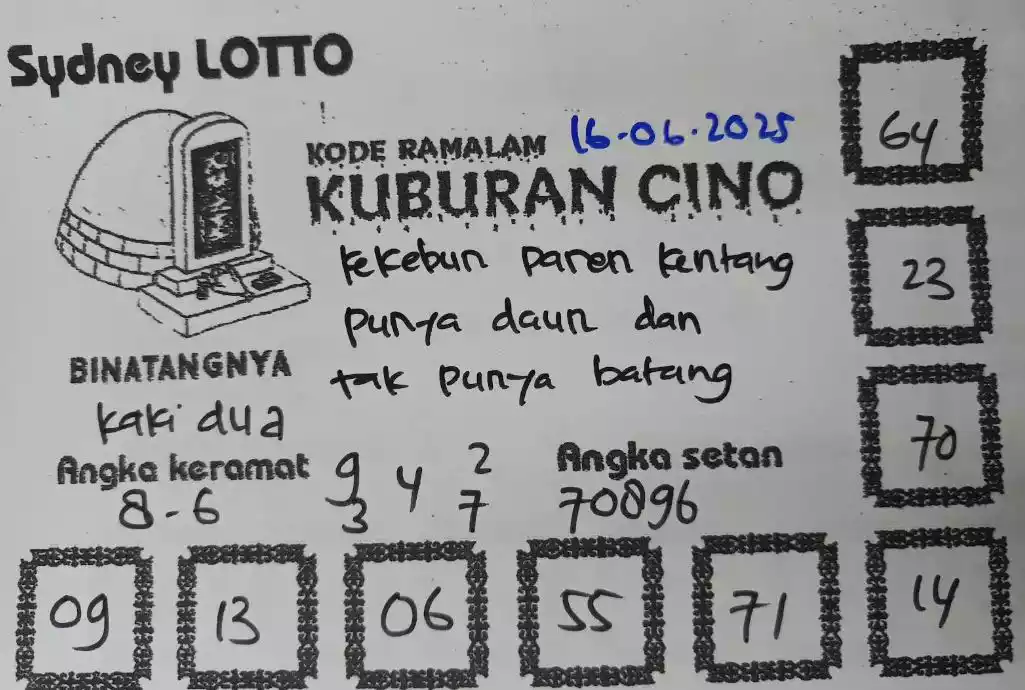 Sydney LOTTO
KODE RAMALAM 16-06-2025
KUBURAN CINO
kekebun paren kentang
punya daun dan
tak punya batang
BINATANGNYA
kaki dua
Angka keramat
8-6
9 4 2
3 7
Angka setan
70896
64
23
70
14
09 13 06 55 71